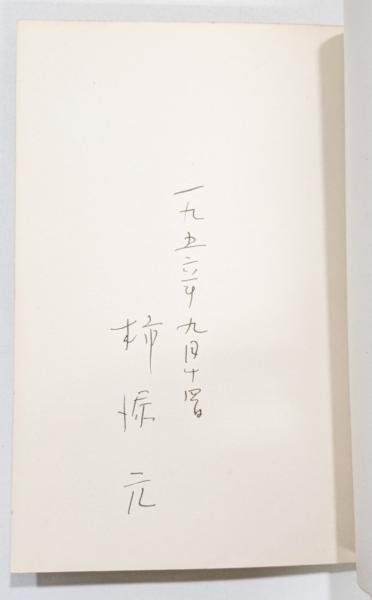 一九五六年九月十四日
柿添元